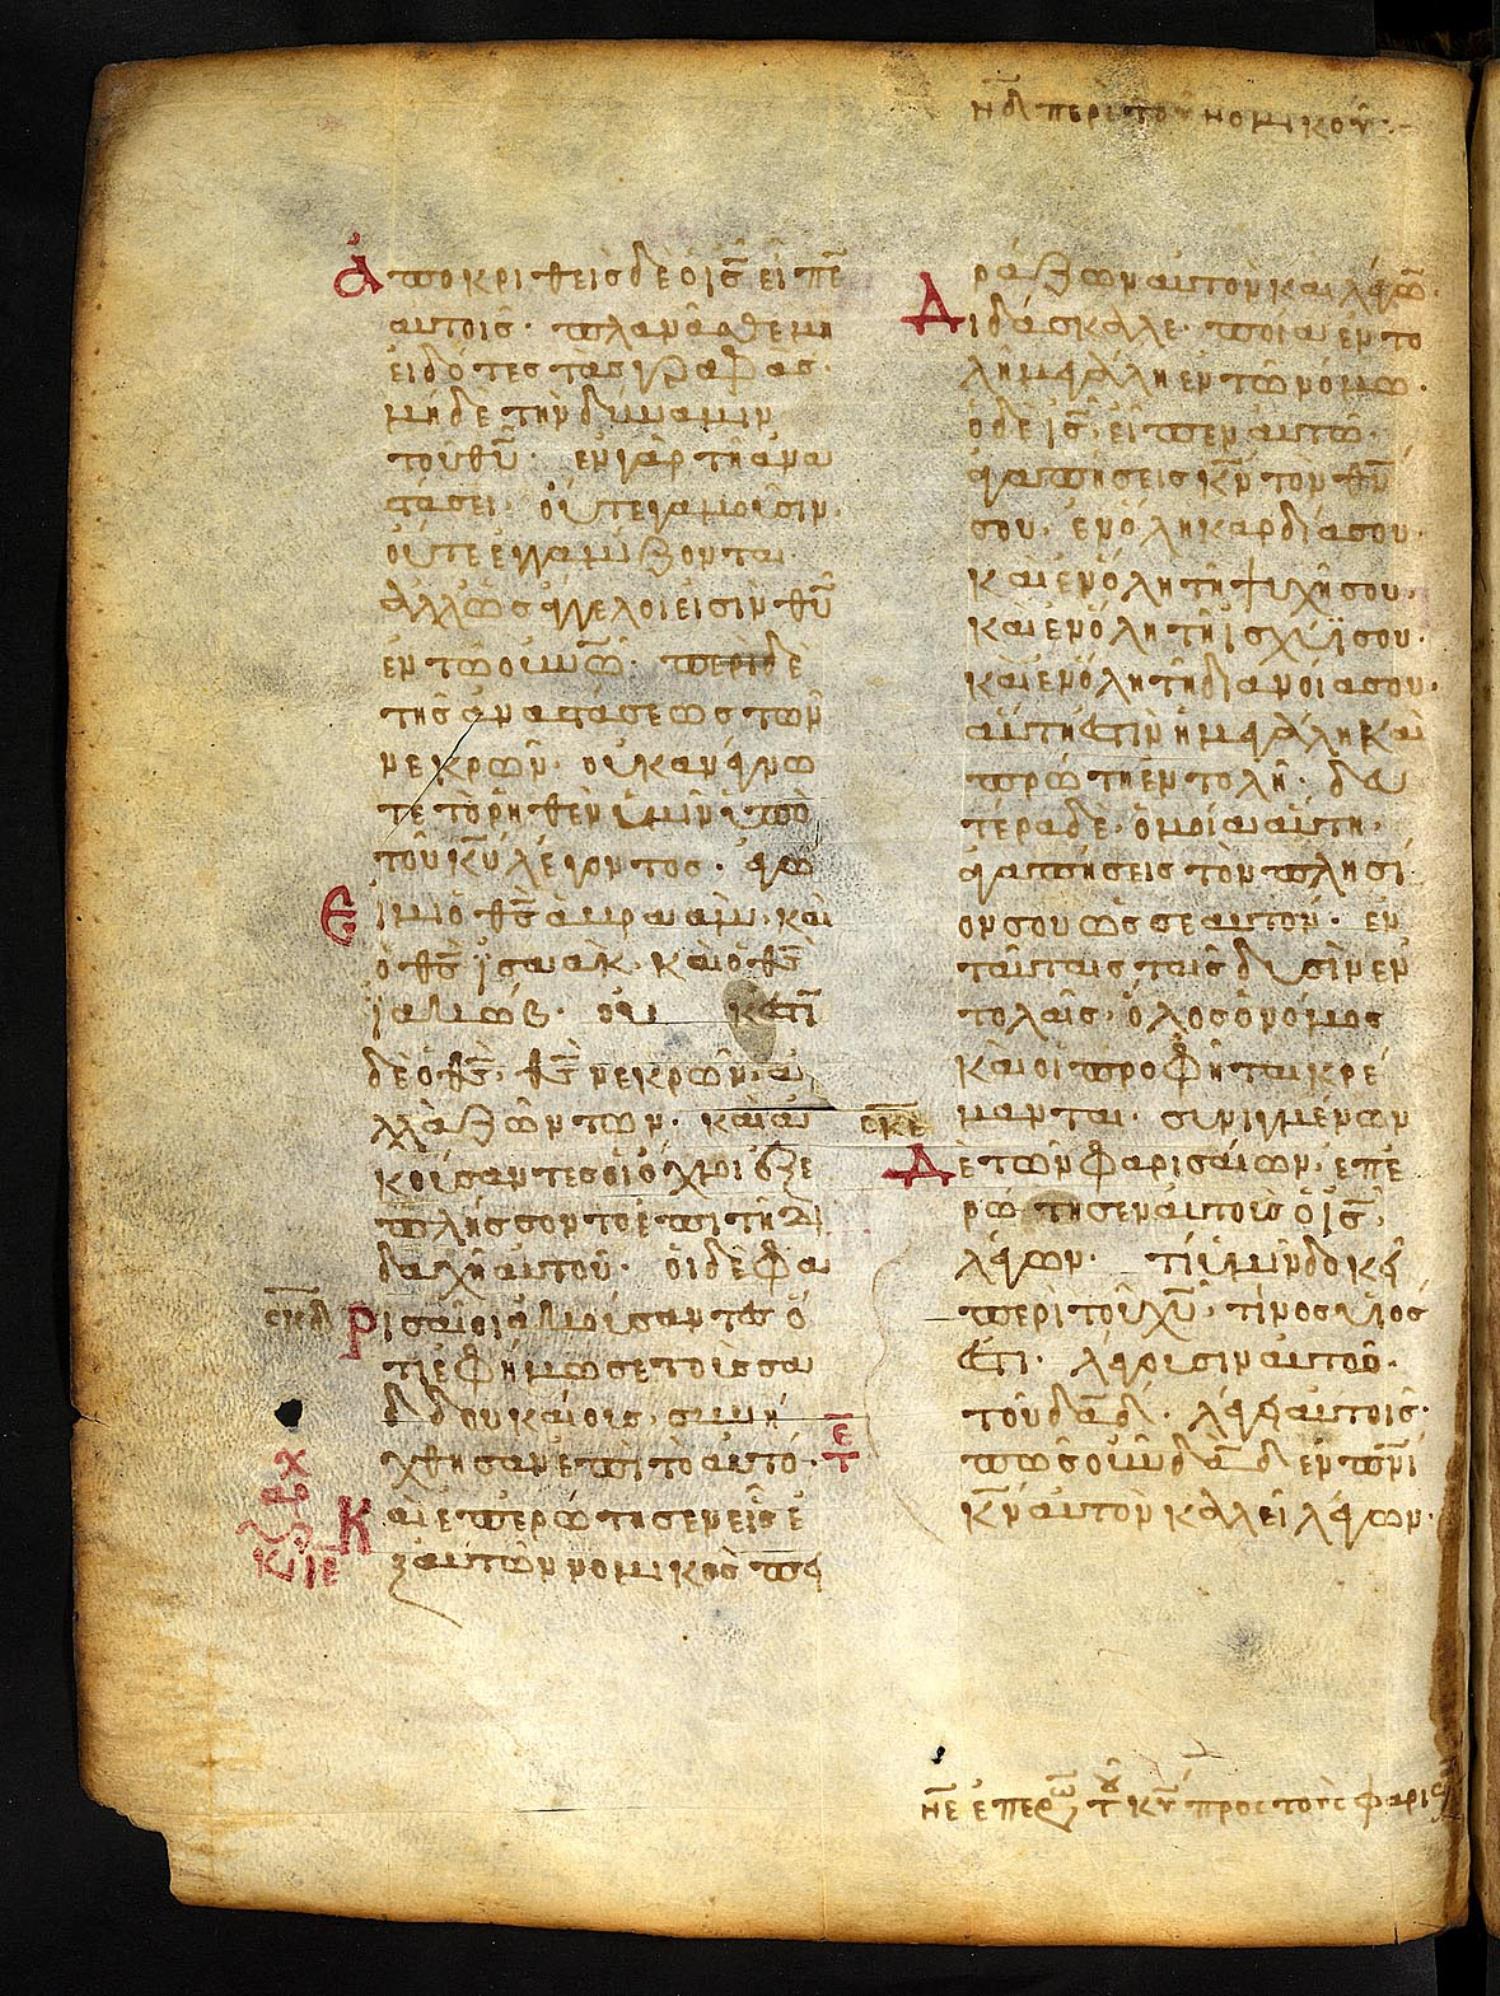 νδ περι του νομικου
Ἀποκριθεὶς δὲ ὁ ις εἶπε
αυτοῖς· πλανᾶσθε μη
εἰδότες τὰς γραφὰς·
μηδὲ τὴν δύναμιν
τοῦ θυ· ἐν γὰρ τῆ ἀνα
στάσει· οὔτε γαμοῦσιν·
οὔτε ἐγγαμίζονται·
ἀλλ ὡς ἄγγελοι εἰσὶν θυ
ἐν τῶ ουνω· περὶ δὲ
τῆς ἀναστάσεως τῶν
νεκρῶν· οὐκ ἀνέγνω
τε τὸ ῥηθὲν ὑμῖν ὑπὸ
τοῦ κυ λέγοντος· ἐγώ
Εἰμι ὁ θς ἀβρααμ· και
ὁ θς ϊσαακ· καὶ ὁ θς
ϊακώβ· οὐκ ἔστι
δὲ ὁ θς· θς νεκρῶν· ἀ
λλὰ ζώντων· καὶ ἀ
κούσαντες οἱ ὄχλοι ἐξε
πλήσσοντο ἐπι τῆ δι
δαχῆ αὐτοῦ· οἱ δὲ φα
σκδ Ρισαῖοι ἀκούσαντες ὅ
τι ἐφίμωσε τοὺς σα
δδουκαίους· συνή
χθησαν ἐπι τὸ αὐτό· ε τ
Καὶ ἐπερώτησεν εἷς ἐ
ξ αὐτῶν νομικὸς πει
ράζων αὐτὸν και λέγω·
Διδάσκαλε· ποία ἐντο
λὴ μεγάλη ἐν τῶ νόμω·
ὁ δὲ ις εἶπεν αὐτῶ·
ἀγαπήσεις κν τὸν θν
σου· ἐν ὅλη καρδία σου·
καὶ ἐν ὅλη τῆ ψυχῆ σου·
καὶ ἐν ὅλη τῆ ἰσχύϊ σου·
καὶ ἐν ὅλη τῆ διανοία σου·
αὕτη ἐστὶν ἡ μεγάλη καὶ
πρώτη ἐντολὴ· δευ
τέρα δὲ· ὁμοία αὐτη·
ἀγαπήσεις τὸν πλησί
ον σου ὡς σεαυτον· ἐν
ταύταις ταῖς δυσὶν ἐν
τολαῖς· ὅλος ὁ νόμος
καὶ οι προφῆται κρέ
σκε μανται· συνηγμένων
Δὲ τῶν φαρισαίων· ἐπε
ρώτησεν αυτοὺς ὁ ις·
λέγων· τί ὑμῖν δοκεῖ
περὶ τοῦ χυ· τίνος υἱός
ἐστι· λέγουσιν αὐτῶ·
τοῦ δαδ· λέγει αὐτοῖς·
πῶς οὖν δαδ ἐν πνι
κν αὐτὸν καλεῖ λέγων·
νε ἐπερω τ κυ προς τοὺς φαρισ